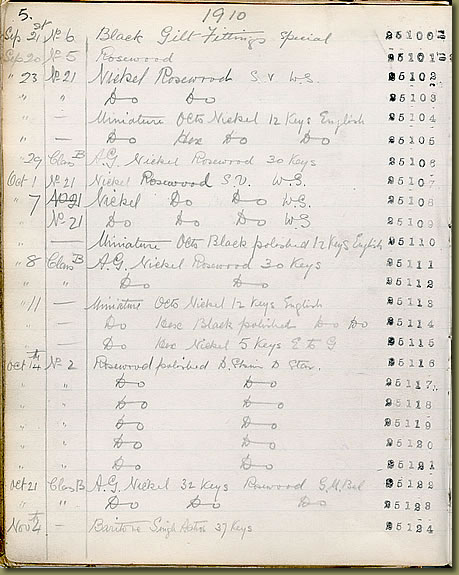 5. 1910
Sep 21st No 6 Black Gilt Fittings Special 25100
Sep 20 No 5 Rosewood 25101
" 23 No 21 Nickel Rosewood S.V W.S. 25102
" " Do Do 25103
" — Miniature Octo Nickel 12 Keys English 25104
" — Do Hex Do Do 25105
" 29 Class B A.G. Nickel Rosewood 30 Keys 25106
Oct 1 No 21 Nickel Rosewood S.V. W.S. 25107
" 7 No 21 Nickel Do Do W.S. 25108
No 21 Do Do Do W.S 25109
" — Miniature Octo Black polished 12 Keys English 25110
" 8 Class B A.G. Nickel Rosewood 30 Keys 25111
" " Do Do 25112
" 11 — Miniature Octo Nickel 12 Keys English 25113
" — Do Hex Black polished Do Do 25114
" — Do Hex Nickel 5 Keys E to G 25115
Oct 14th No 2 Rosewood polished D. D Star. 25116
" " Do Do 25117
" " Do Do 25118
" " Do Do 25119
" " Do Do 25120
" " Do Do 25121
Oct 21 Class B A.G. Nickel 32 Keys Rosewood 25122
" " Do Do Do 25123
Nov 4th — Baritone 37 Keys 25124